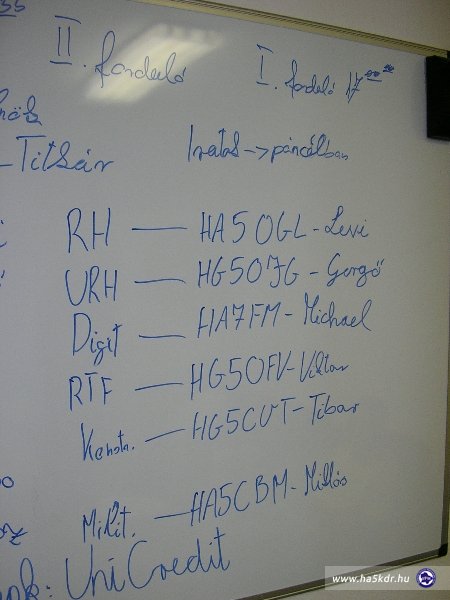 II. forduló I. forduló 17
Titkár Iratok -> páncélban
RH — HA5OGL - Levi
URH — HG5OJG - Gergő
Digit — HA7FM - Michael
RTF — HG5OFV - Viktor
Konstr. — HG5CUT - Tibor
Milit. — HA5CBM - Miklós
UniCredit
www.ha5kdr.hu